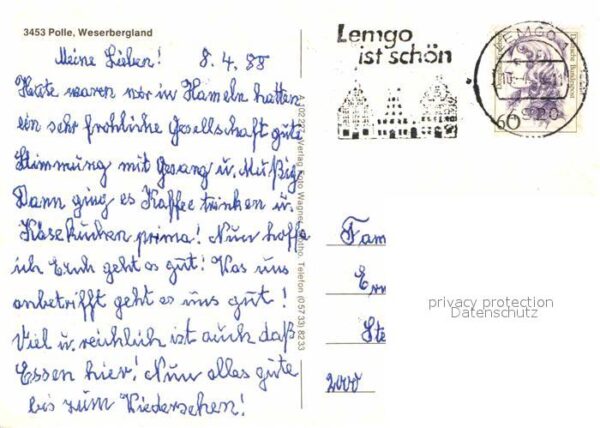 3453 Polle, Weserbergland
Meine Lieben! 8. 4. 88
Heute waren wir in Hameln hatten
ein sehr fröhliche Gesellschaft gute
Stimmung mit Gesang u. Mußig
Dann ging es Kaffee trinken u.
Käsekuchen prima! Nun hoffe
ich Euch geht es gut! Was uns
anbetrifft geht es uns gut!
Viel u. reichlich ist auch daß
Essen hier! Nun alles gute
bis zum Wiedersehen!
Verlag Foto Wagner, Vlotho. Telefon (05733) 8233
Lemgo
ist schön
LEMGO 1
4920
60
Fam
Ste
2000
privacy protection
Datenschutz